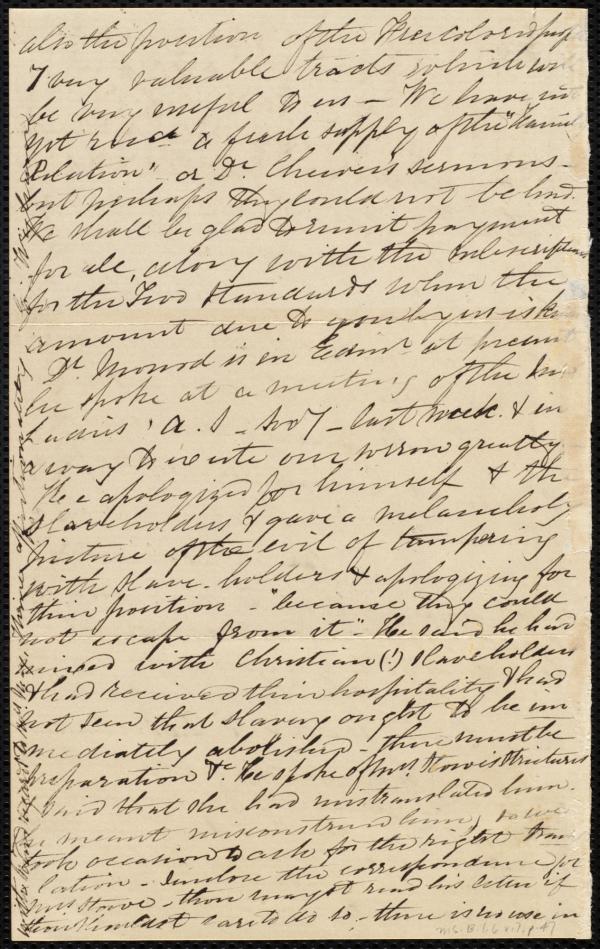 also the position of the Free colored peop
7 very valuable tracts which will
be very useful to us - We have
not recd a fresh supply of the "Family
Relation" or Dr Cheever's sermons -
but perhaps they could not be had.
We shall be glad to remit payment
for all, along with the subscriptions
for the Two Standards when the
amount due to you by us is known
Dr Monod is in Edinr at present
he spoke at a meeting of the
Ladies' A. S - Socy - last week. & in
a way to excite our sorrow greatly
He apologized for himself & the
slaveholders & gave a melancholy
picture of the evil of tampering
with slave-holders & apologizing for
their position - "because they could
not escape from it" - He said he had
mixed with Christian (!) slaveholders
& had received their hospitality & had
not seen that slavery ought to be im
mediately abolished - there must be
preparation &c He spoke of Mrs Stowe's strictures
& said that she had mistranslated him.
meant misconstrued him,
took occasion to ask for the right tran
lation - I enclose the correspondence for
Mrs Stowe - thou may'st read his letter if
thou shouldst care to do so, - there is no use in
Ms. B. 1. 6 v. 7, p. 47